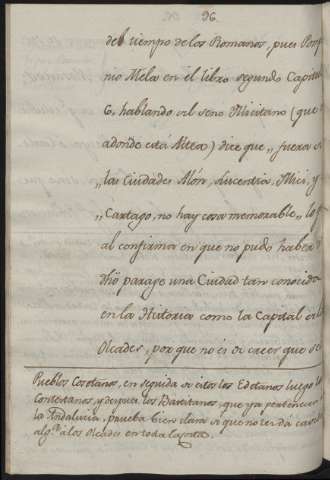 96.
del tiempo de los Romanos, pues Pomp
nio Mela en el libro segundo Capitul
6, hablando del seno Illicitano (que
adonde está Altea) dice que „ fuera de
„ las Ciudades Alón, Lucentia, Illici, y
„ Cartago, no hay cosa memorable „ lo q
al confirma en que no pudo haber
dho parage una Ciudad tan conocida
en la Historia como la Capital de l
Olcades, porque no és de creer que se
Pueblos Cosetanos, en seguida de estos los Edetanos luego l
Contestanos, y despues los Bastitanos, que ya pertenecen
la Andalucia, prueba bien clara de que no les dá
alg.º a los Olcades en toda la costa.